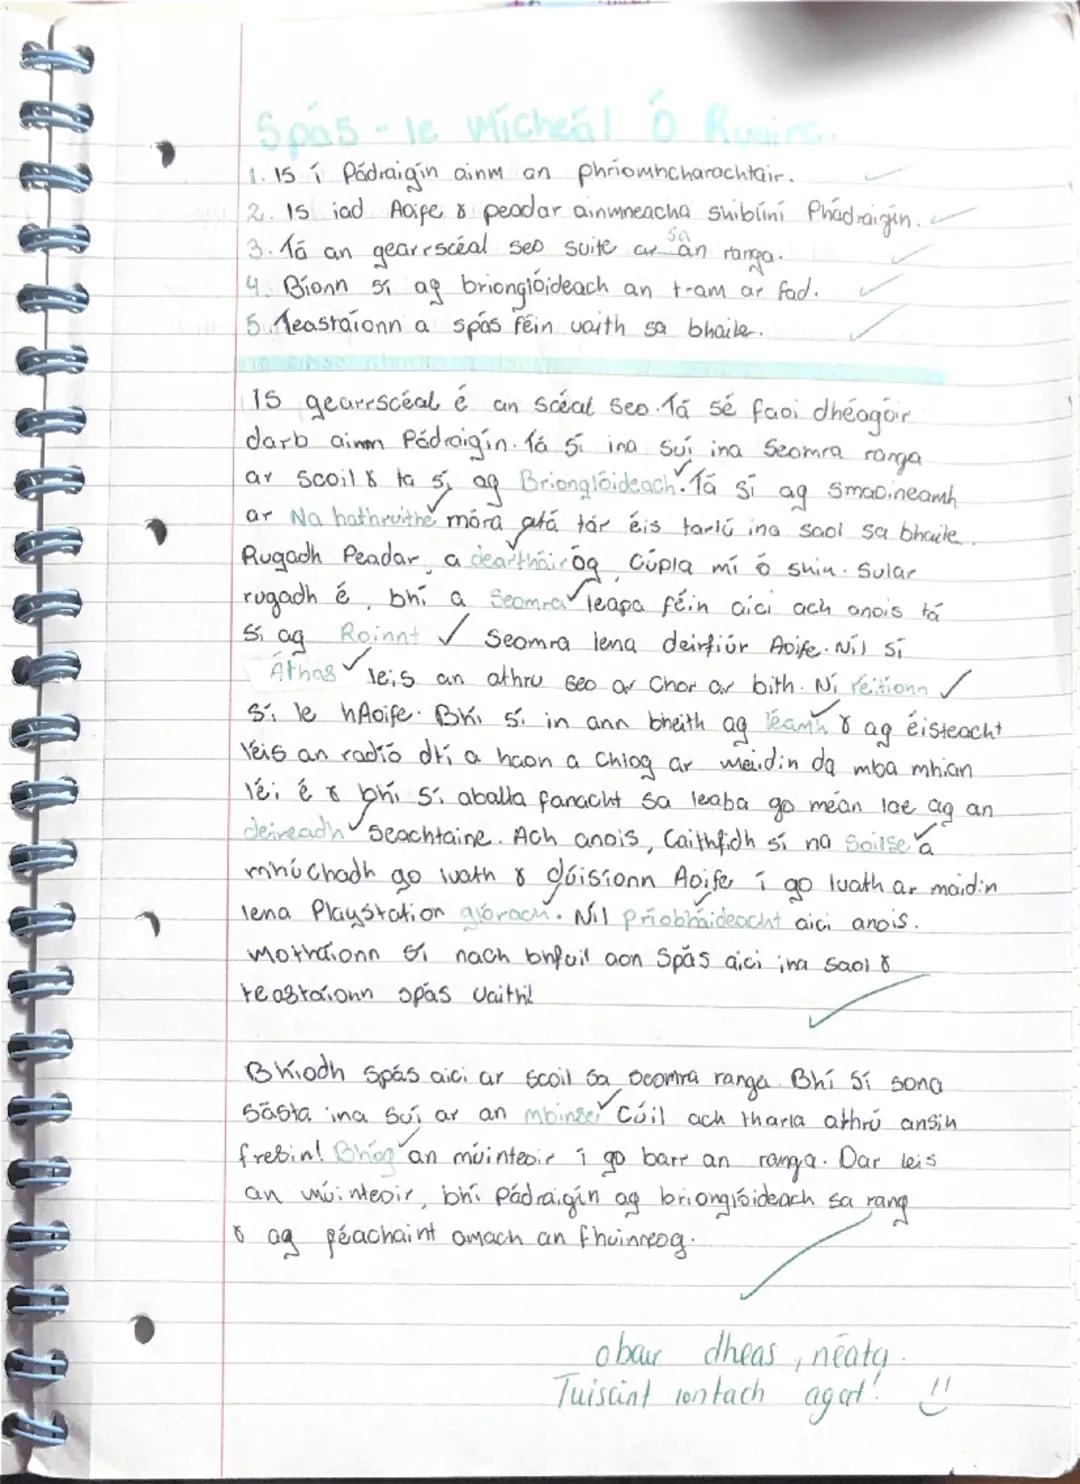 Spás - le Mícheál Ó Ruairc.
1. Is í Pádraigín ainm an phríomhcharachtair.
2. Is iad Aoife & peadar ainmneacha shiblíní Phádraigín.
3. Tá an gearrscéal seo suite ar sa an ranga.
4. Bíonn sí ag brionglóideach an t-am ar fad.
5. Teastaíonn a spás féin uaith sa bhaile.
Is gearrscéal é an scéal seo. Tá sé faoi dhéagóir
darb ainm Pádraigín. Tá sí ina suí ina Seomra ranga
ar scoil & ta sí ag Brionglóideach. Tá sí ag smaoineamh
ar Na hathruithe móra atá tár éis tarlú ina saol sa bhaile.
Rugadh Peadar, a deartháir óg, Cúpla mí ó shin. Sular
rugadh é, bhí a Seomra leapa féin aici ach anois tá
sí ag Roinnt Seomra lena deirfiúr Aoife. Níl sí
Áthas leis an athru seo ar Chor ar bith. Ní réitíonn
sí le hAoife. Bhí sí in ann bheith ag léamh & ag éisteacht
léis an radió dtí a haon a Chlog ar maidin da mba mhian
léi é & bhí sí aballa fanacht sa leaba go méan lae ag an
deireadh seachtaine. Ach anois, Caithfidh sí na Soilse a
mhúchadh go luath & dúisíonn Aoife í go luath ar maidin
lena Playstation glórach. Níl Príobháideacht aici anois.
Mothaíonn sí nach bhfuil aon Spás aici ina saol &
teastaíonn spás Uaithi!
Bhíodh Spás aici ar scoil sa seomra ranga. Bhí sí sona
sásta ina suí ar an mbinse Cúil ach tharla athrú ansin
freisin! Bhog an múinteoir í go barr an ranga. Dar leis
an múinteoir, bhí Pádraigín ag brionglóideach sa rang
& ag péachaint amach an fhuinneog.
obair dheas, néata.
Tuiscint iontach agat!